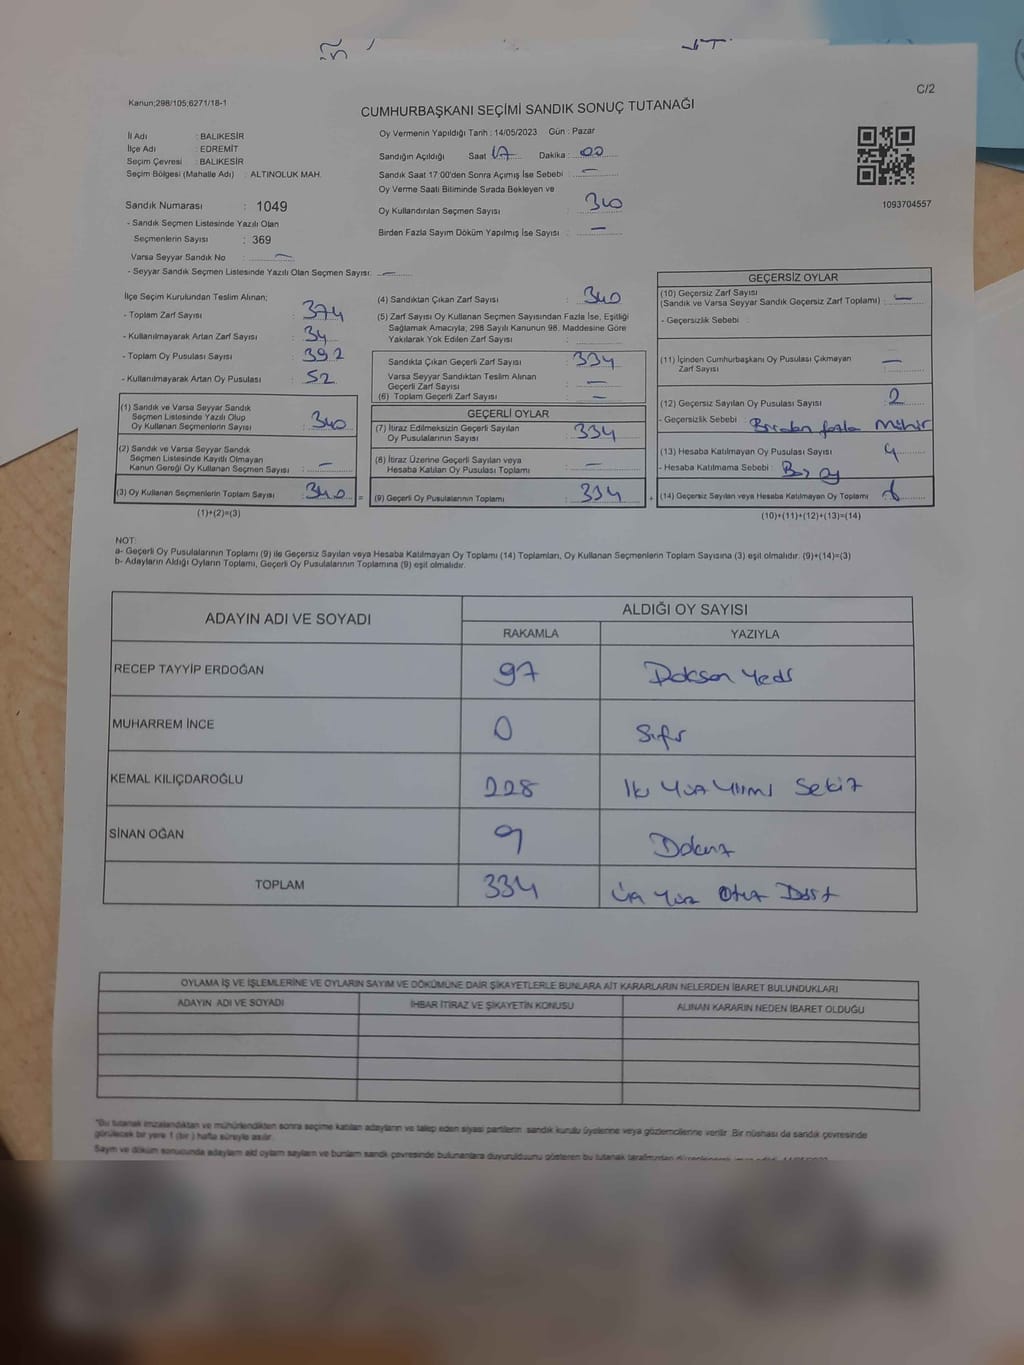 C/2
Kanun;298/105;6271/18-1
CUMHURBAŞKANI SEÇİMİ SANDIK SONUÇ TUTANAĞI
İl Adı : BALIKESİR
İlçe Adı : EDREMİT
Seçim Çevresi : BALIKESİR
Seçim Bölgesi (Mahalle Adı) : ALTINOLUK MAH.
Sandık Numarası : 1049
- Sandık Seçmen Listesinde Yazılı Olan
Seçmenlerin Sayısı : 369
Varsa Seyyar Sandık No : —
- Seyyar Sandık Seçmen Listesinde Yazılı Olan Seçmen Sayısı: —
Oy Vermenin Yapıldığı Tarih : 14/05/2023 Gün : Pazar
Sandığın Açıldığı Saat 17 Dakika : 00
Sandık Saat 17:00'den Sonra Açımış İse Sebebi : —
Oy Verme Saati Bitiminde Sırada Bekleyen ve
Oy Kullandırılan Seçmen Sayısı : 340
Birden Fazla Sayım Döküm Yapılmış İse Sayısı : —
1093704557
İlçe Seçim Kurulundan Teslim Alınan;
- Toplam Zarf Sayısı : 374
- Kullanılmayarak Artan Zarf Sayısı : 34
- Toplam Oy Pusulası Sayısı : 392
- Kullanılmayarak Artan Oy Pusulası : 52
(1) Sandık ve Varsa Seyyar Sandık
Seçmen Listesinde Yazılı Olup
Oy Kullanan Seçmenlerin Sayısı : 340
(2) Sandık ve Varsa Seyyar Sandık
Seçmen Listesinde Kayıtlı Olmayan
Kanun Gereği Oy Kullanan Seçmen Sayısı : —
(3) Oy Kullanan Seçmenlerin Toplam Sayısı : 340 =
(1)+(2)=(3)
(4) Sandıktan Çıkan Zarf Sayısı : 340
(5) Zarf Sayısı Oy Kullanan Seçmen Sayısından Fazla İse, Eşitliği
Sağlamak Amacıyla; 298 Sayılı Kanunun 98. Maddesine Göre
Yakılarak Yok Edilen Zarf Sayısı :
Sandıkta Çıkan Geçerli Zarf Sayısı : 334
Varsa Seyyar Sandıktan Teslim Alınan
Geçerli Zarf Sayısı : —
(6) Toplam Geçerli Zarf Sayısı : —
GEÇERLİ OYLAR
(7) İtiraz Edilmeksizin Geçerli Sayılan
Oy Pusulalarının Sayısı : 334
(8) İtiraz Üzerine Geçerli Sayılan veya
Hesaba Katılan Oy Pusulası Toplamı : —
(9) Geçerli Oy Pusulalarının Toplamı : 334 +
GEÇERSİZ OYLAR
(10) Geçersiz Zarf Sayısı
(Sandık ve Varsa Seyyar Sandık Geçersiz Zarf Toplamı) : —
- Geçersizlik Sebebi :
(11) İçinden Cumhurbaşkanı Oy Pusulası Çıkmayan
Zarf Sayısı : —
(12) Geçersiz Sayılan Oy Pusulası Sayısı : 2
- Geçersizlik Sebebi : Birden fazla Mühür
(13) Hesaba Katılmayan Oy Pusulası Sayısı : 4
- Hesaba Katılmama Sebebi : Boş oy
(14) Geçersiz Sayılan veya Hesaba Katılmayan Oy Toplamı : 6
(10)+(11)+(12)+(13)=(14)
NOT:
a- Geçerli Oy Pusulalarının Toplamı (9) ile Geçersiz Sayılan veya Hesaba Katılmayan Oy Toplamı (14) Toplamları, Oy Kullanan Seçmenlerin Toplam Sayısına (3) eşit olmalıdır. (9)+(14)=(3)
b- Adayların Aldığı Oyların Toplamı, Geçerli Oy Pusulalarının Toplamına (9) eşit olmalıdır.
ADAYIN ADI VE SOYADI ALDIĞI OY SAYISI
RAKAMLA YAZIYLA
RECEP TAYYİP ERDOĞAN 97 Doksan Yedi
MUHARREM İNCE 0 Sıfır
KEMAL KILIÇDAROĞLU 228 İki Yüz Yirmi Sekiz
SİNAN OĞAN 9 Dokuz
TOPLAM 334 Üç Yüz Otuz Dört
OYLAMA İŞ VE İŞLEMLERİNE VE OYLARIN SAYIM VE DÖKÜMÜNE DAİR ŞİKAYETLERLE BUNLARA AİT KARARLARIN NELERDEN İBARET BULUNDUKLARI
ADAYIN ADI VE SOYADI İHBAR İTİRAZ VE ŞİKAYETİN KONUSU ALINAN KARARIN NEDEN İBARET OLDUĞU
"Bu tutanak imzalandıktan ve mühürlendikten sonra seçime katılan adayların ve talep eden siyasi partilerin sandık kurulu üyelerine veya gözlemcilerine verilir. Bir nüshası da sandık çevresinde
görülecek bir yere 1 (bir ) hafta süreyle asılır.
Sayım ve döküm sonucunda adayların aldı oyların sayıların ve bunların sandık çevresinde bulunanlara duyurulduunu gösteren bu tutanak tarafımızdan